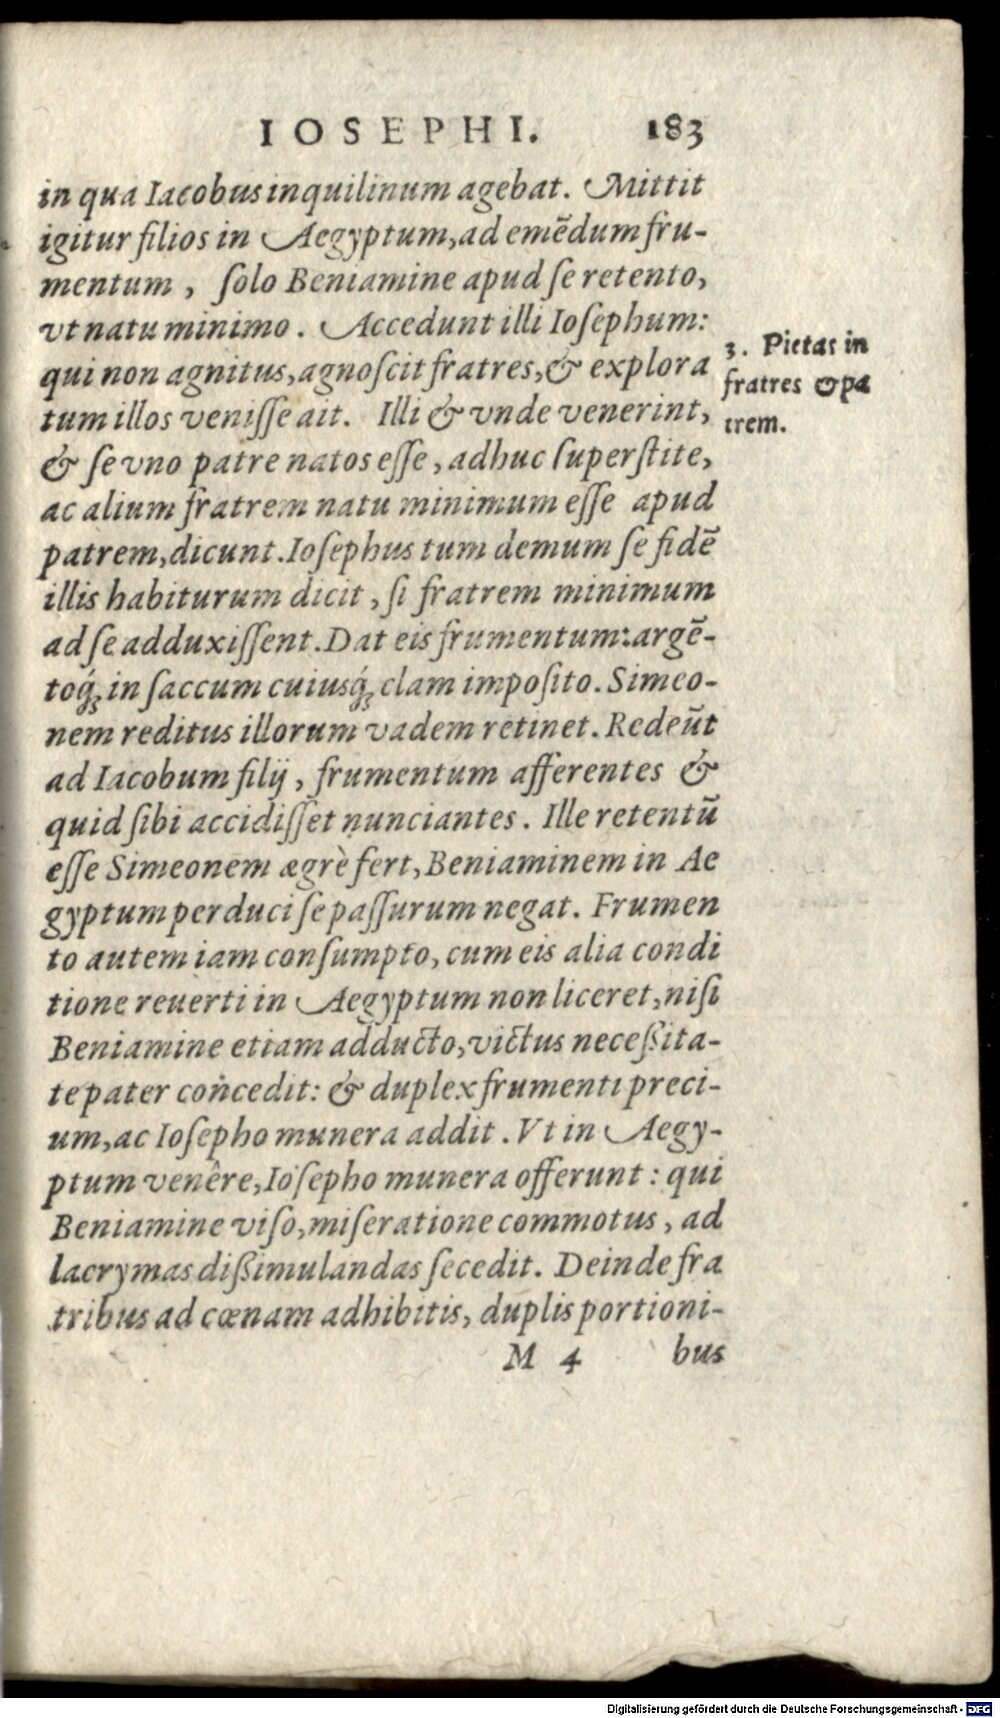 IOSEPHI. 183
in qua Iacobus inquilinum agebat. Mittit
igitur filios in Aegyptum, ad emēdum fru-
mentum, ſolo Beniamine apud ſe retento,
vt natu minimo. Accedunt illi Ioſephum:
qui non agnitus, agnoſcit fratres, & explora
tum illos veniſſe ait. Illi & vnde venerint,
& ſe vno patre natos eſſe, adhuc ſuperſtite,
ac alium fratrem natu minimum eſſe apud
patrem, dicunt. Ioſephus tum demum ſe fidē
illis habiturum dicit, ſi fratrem minimum
ad ſe adduxiſſent. Dat eis frumentum: argē-
toq́; in ſaccum cuiusq́; clam impoſito. Simeo-
nem reditus illorum vadem retinet. Redeūt
ad Iacobum filij, frumentum afferentes &
quid ſibi accidiſſet nunciantes. Ille retentū
eſſe Simeonem ægrè fert, Beniaminem in Ae
gyptum perduci ſe paſſurum negat. Frumen
to autem iam conſumpto, cum eis alia condi
tione reuerti in Aegyptum non liceret, niſi
Beniamine etiam adducto, victus neceßita-
te pater concedit: & duplex frumenti preci-
um, ac Ioſepho munera addit. Vt in Aegy-
ptum venêre, Ioſepho munera offerunt: qui
Beniamine viſo, miſeratione commotus, ad
lacrymas dißimulandas ſecedit. Deinde fra
tribus ad cœnam adhibitis, duplis portioni-
M 4 bus
3. Pietas in
fratres & pa
trem.
Digitalisierung gefördert durch die Deutsche Forschungsgemeinschaft - DFG